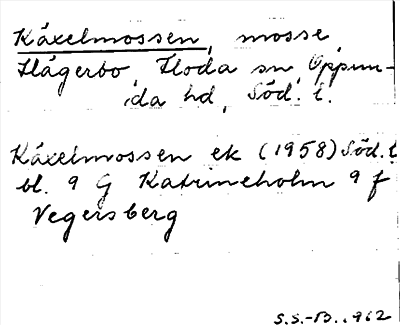 Käxelmossen, mosse,
Hågerbo, Floda sn, Oppun-
da hd, Söd. l.
Käxelmossen ek (1958) Söd. l
bl. 9 G Katrineholm 9 f
Vegersberg
S.S.-B. 1962